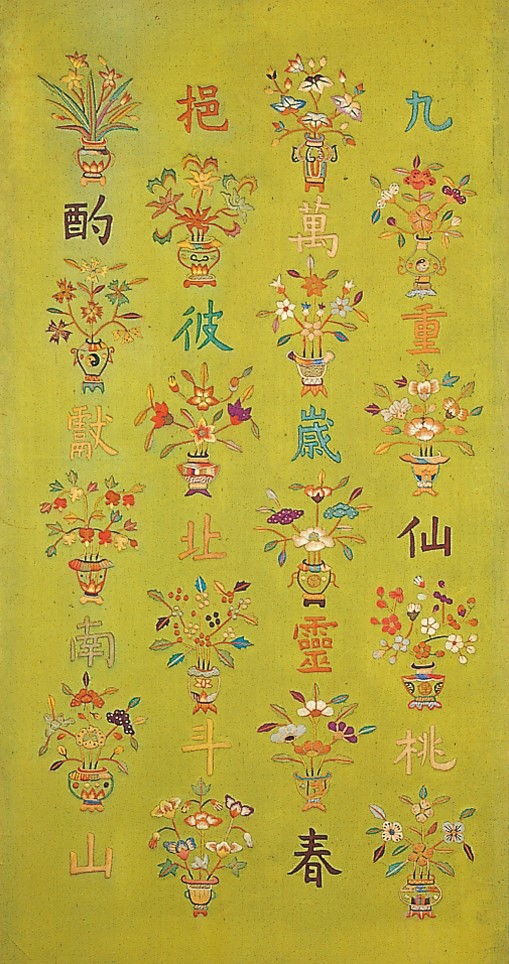 九重仙桃
萬歲靈春
挹彼北斗
酌獻南山